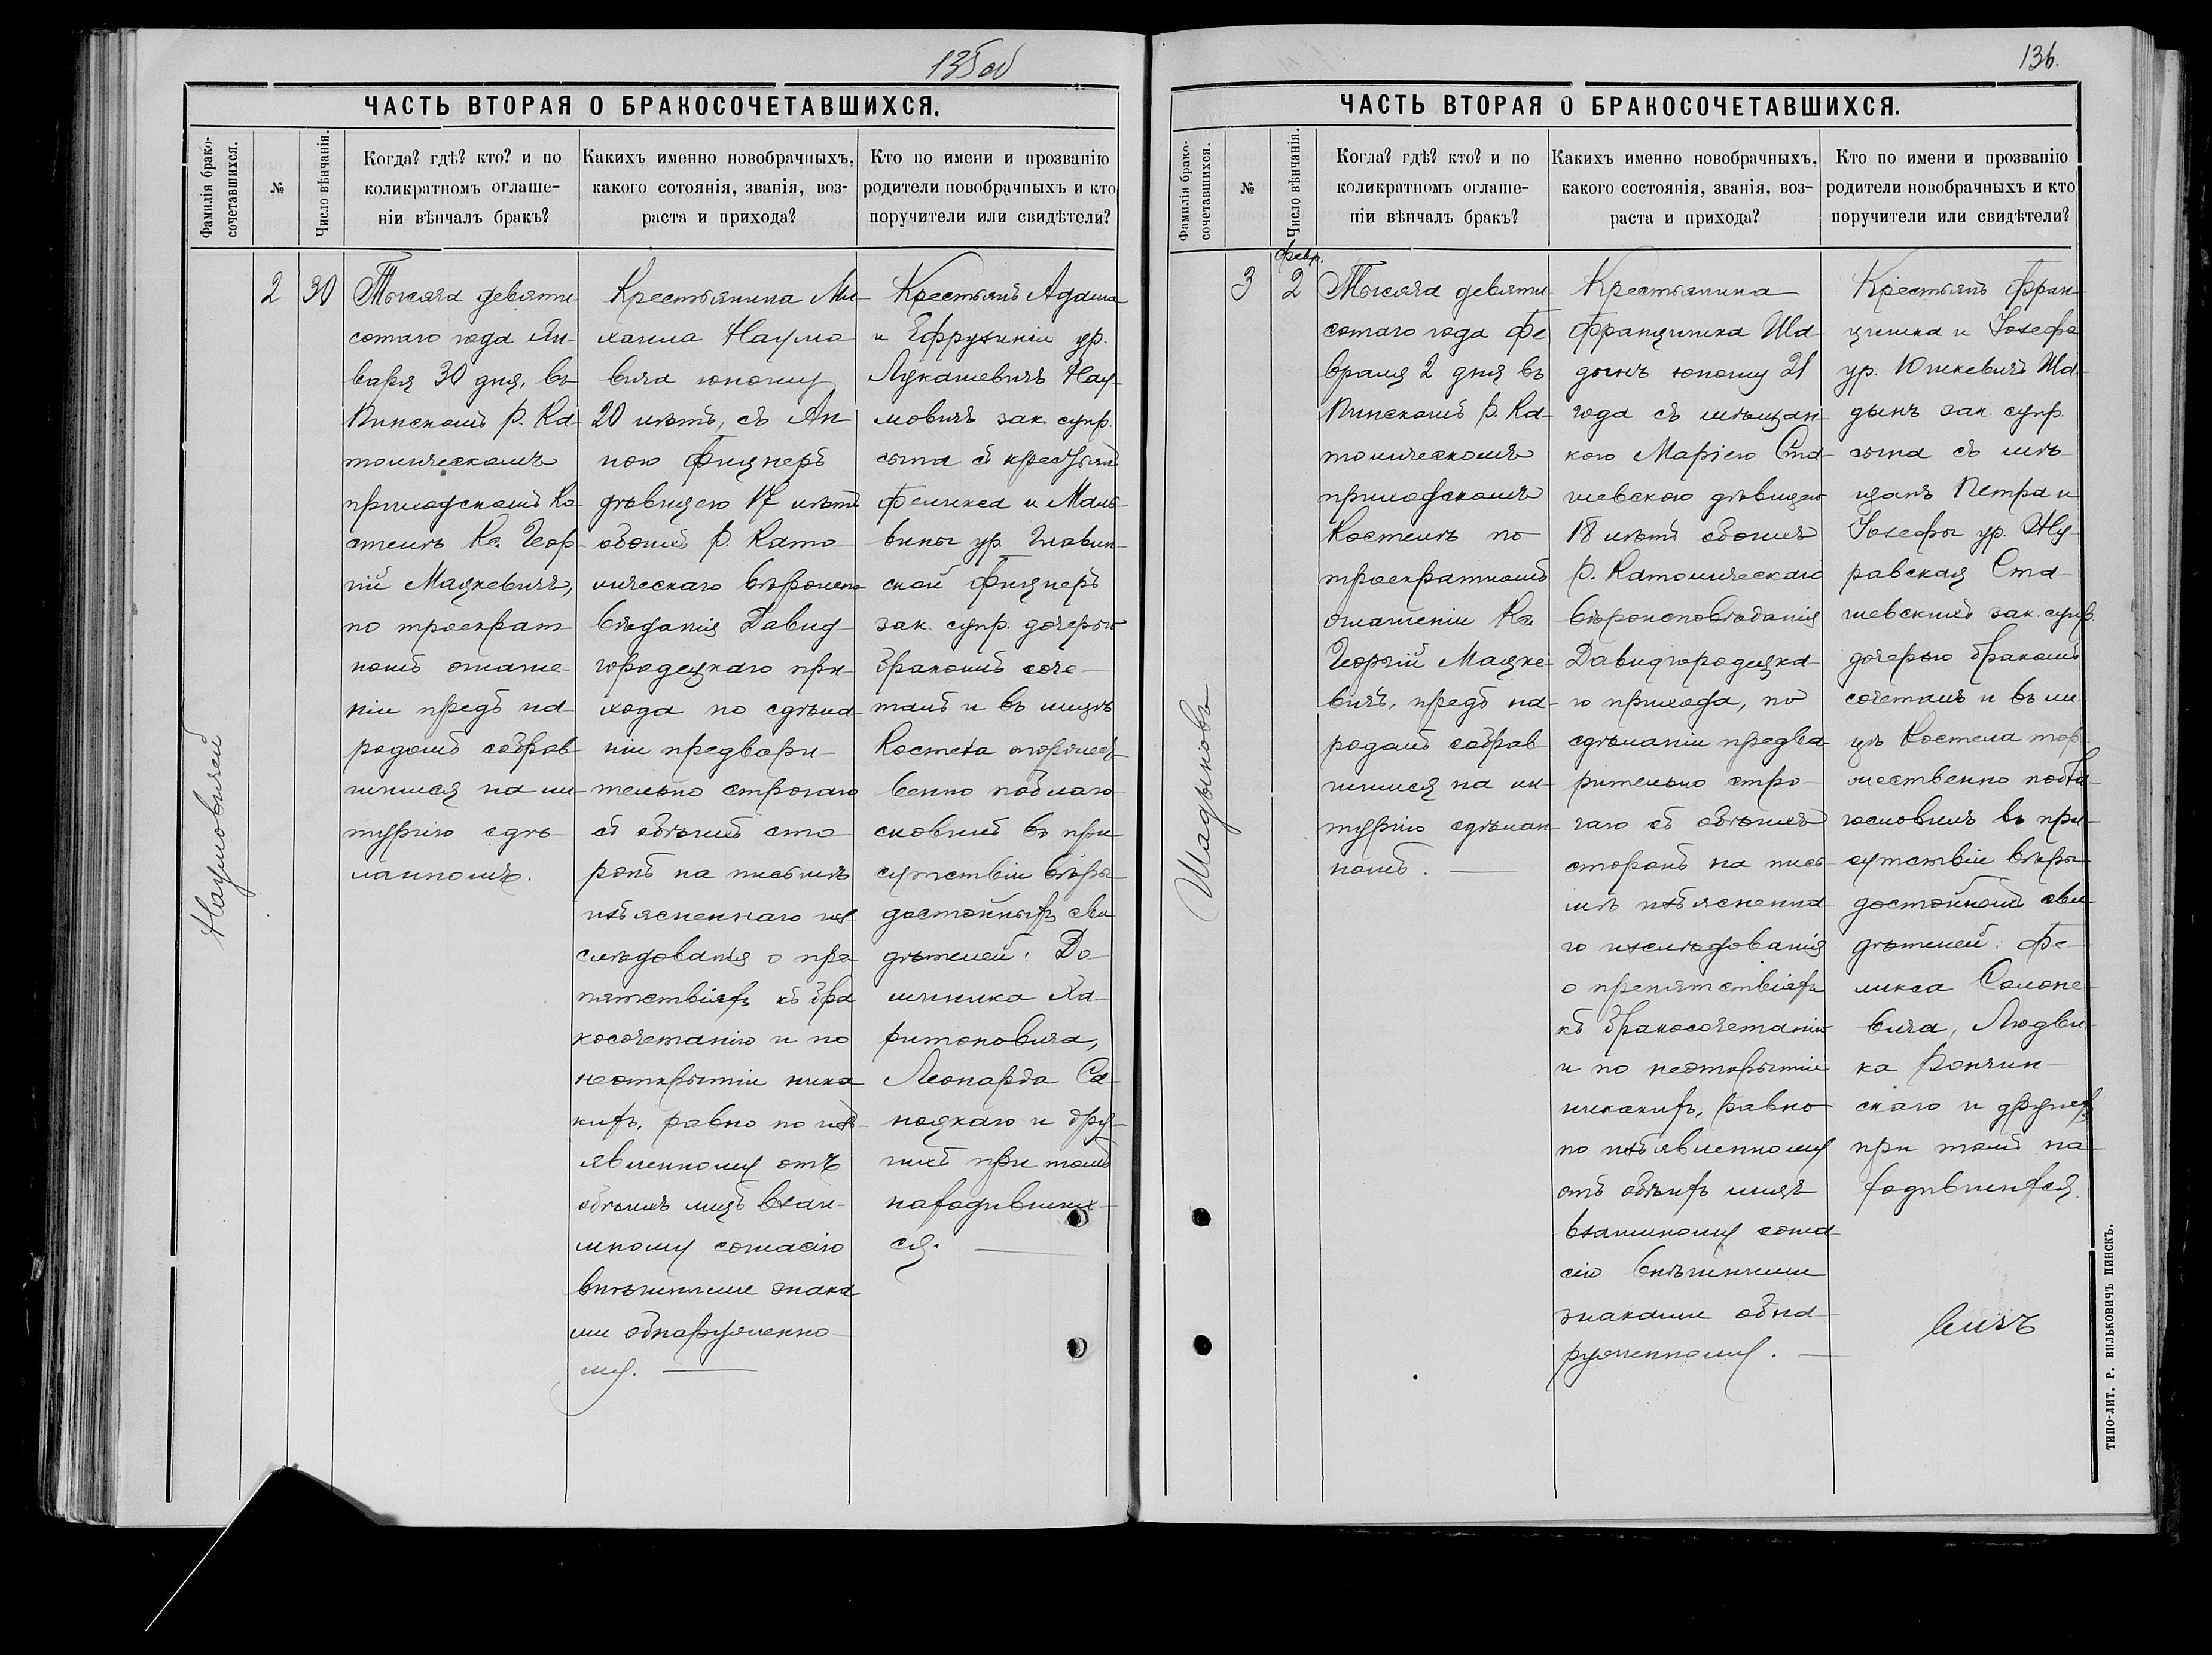 135об
ЧАСТЬ ВТОРАЯ О БРАКОСОЧЕТАВШИХСЯ.
Фамилія брако-
сочетавшихся.
№
Число вѣнчанія.
Когда? гдѣ? кто? и по
коликратномъ оглаше-
ніи вѣнчалъ бракъ?
Какихъ именно новобрачныхъ,
какого сотоянія, званія, воз-
раста и прихода?
Кто по имени и прозванію
родители новобрачныхъ и кто
поручители или свидѣтели?
Наумовичей
2
30
Тысяча девяти
сотаго года Ян-
варя 30 дня, въ
Пинскомъ Р. Ка-
толическомъ
приходскомъ Ко-
стелѣ Кс. Геор-
гій Мацкевичъ,
по троекрат-
номъ оглаше-
ніи предъ на-
родомъ собрав-
шимся на ли-
тургію сдѣ-
ланномъ.
Крестьянина Ми-
хаила Наумо-
вича юношу
20 лѣтъ, съ Ан-
ною Фицнеръ
дѣвицею 17 лѣтъ
обоихъ Р. Като-
лическаго вѣроиспо
вѣданія Давид-
городецкаго при-
хода по сдѣла-
ніи предвари-
тельно строгаго
съ обѣихъ сто-
ронъ на письмѣ
изъясненнаго из-
слѣдованія о пре-
пятствіяхъ къ бра
косочетанію и по
неоткрытіи ника
кихъ, равно по изъ-
явленному отъ
обѣихъ лицъ взаи-
мному согласію
внѣшними знака
ми обнаруженно-
му.
Крестьянъ Адама
и Ефрузиніи ур.
Лукашевичъ Нау-
мовичъ зак. супр.
сына съ крестьянъ
Феликса и Маль-
вины ур. Главин-
ской Фицнеръ
зак. супр. дочерью
бракомъ соче-
талъ и въ лицѣ
Костела торжест-
венно поблаго-
словилъ въ при-
сутствіи вѣры-
достойныхъ сви
дѣтелей: До-
миника Ха-
ритоновича,
Леонарда Са-
ноцкаго и дру-
гихъ при томъ
находившихъ-
ся.
136.
ЧАСТЬ ВТОРАЯ О БРАКОСОЧЕТАВШИХСЯ.
Фамилія брако-
сочетавшихся.
№
Число вѣнчанія.
Когда? гдѣ? кто? и по
коликратномъ оглаше-
ніи вѣнчалъ бракъ?
Какихъ именно новобрачныхъ,
какого состоянія, званія, воз-
раста и прихода?
Кто по имени и прозванію
родители новобрачныхъ и кто
поручители или свидѣтели?
Шадыновъ
3
Февр.
2
Тысяча девяти
сотаго года Фе
враля 2 дня въ
Пинскомъ Р. Ка-
толическомъ
приходскомъ
Костелѣ по
троекратномъ
оглашеніи Кс.
Георгій Мацке-
вичъ, предъ на-
родомъ собрав-
шимся на ли-
тургію сдѣлан-
номъ.
Крестьянина
Францишка Ша-
дынъ юношу 21
года съ мѣщан-
кою Маріею Ста-
шевскою дѣвицею
18 лѣтъ обоихъ
Р. Католическаго
вѣроисповѣданія
Давидгородецка-
го прихода, по
сдѣланіи предва-
рительно стро-
гаго съ обѣихъ
сторонъ на пись-
мѣ изъясненна-
го изслѣдованія
о препятствіяхъ
къ бракосочетанію
и по неоткрытіи
никакихъ, равно
по изъявленному
отъ обѣихъ лицъ
взаимному согла-
сію внѣшними
знаками обна-
руженному.
Крестьянъ Фран-
цишка и Іозефы
ур. Юшкевичъ Ша-
дынъ зак. супр.
сына съ мѣ-
щанъ Петра и
Іозефы ур. Жу-
равская Ста-
шевскихъ зак. супр.
дочерью бракомъ
сочеталъ и въ ли
цѣ Костела тор-
жественно побла-
гословилъ въ при-
сутствіи вѣры-
достойномъ сви
дѣтелей: Фе-
ликса Солоне-
вича, Людви-
ка Рончин-
скаго и другихъ
при томъ на-
ходившихся.
ТИПО-ЛИТ. Р. ВИЛЬКОВИЧЪ ПИНСКЪ.